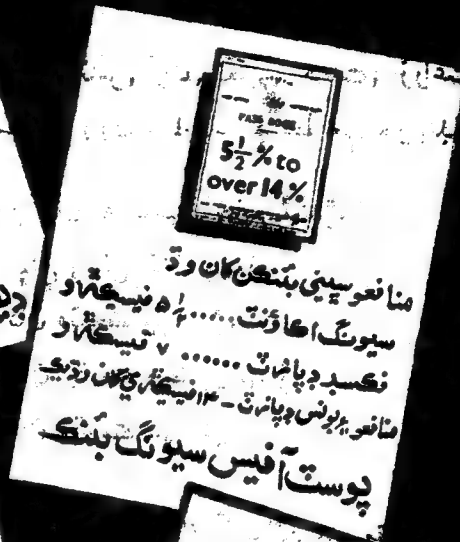 PASS BOOK
5½% to
over 14%
منافعو سڀني بئنڪن کان وڌ
سيونگ اڪائونٽ..... ½ ۵ فيسيڪڙو
فڪسڊ ڊپازٽ ...... ۷ فيسيڪڙو
منافعو ۽ بونس ڊپازٽ - ۱۴ فيسيڪڙي کان وڌيڪ
پوسٽ آفيس سيونگ بئنڪ